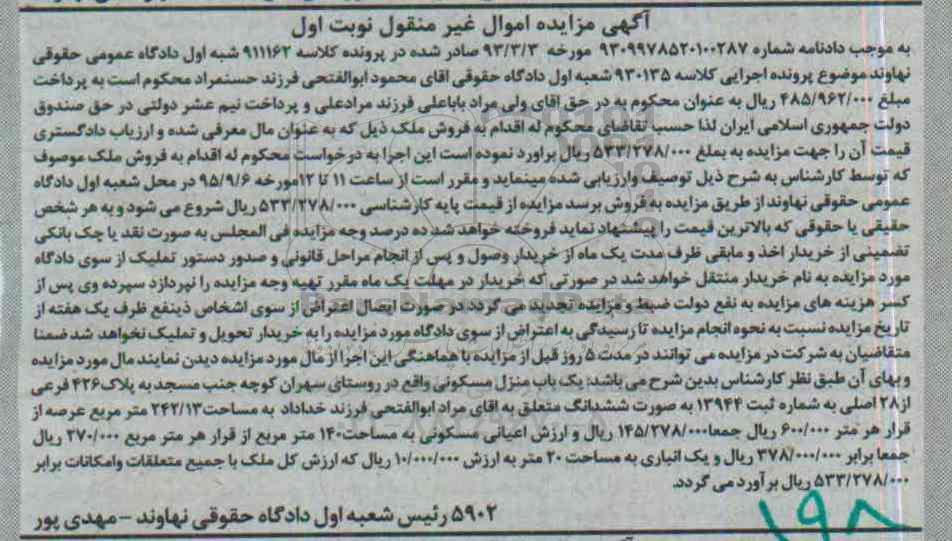 آگهی مزایده اموال غیر منقول نوبت اول
به موجب دادنامه شماره ۹۳۰۹۹۷۸۵۲۰۱۰۰۲۸۷ مورخه ۹۳/۳/۳ صادر شده در پرونده کلاسه ۹۱۱۱۶۲ شبه اول دادگاه عمومی حقوقی
نهاوند موضوع پرونده اجرایی کلاسه ۹۳۰۱۳۵ شعبه اول دادگاه حقوقی اقای محمود ابوالفتحی فرزند حسنمراد محکوم است به پرداخت
مبلغ ۴۸۵/۹۶۲/۰۰۰ ریال به عنوان محکوم به در حق اقای ولی مراد باباعلی فرزند مرادعلی و پرداخت نیم عشر دولتی در حق صندوق
دولت جمهوری اسلامی ایران لذا حسب تقاضای محکوم له اقدام به فروش ملک ذیل که به عنوان مال معرفی شده و ارزیاب دادگستری
قیمت آن را جهت مزایده به بمبلغ ۵۳۳/۲۷۸/۰۰۰ ریال براورد نموده است این اجرا به درخواست محکوم له اقدام به فروش ملک موصوف
که توسط کارشناس به شرح ذیل توصیف وارزیابی شده مینماید و مقرر است از ساعت ۱۱ تا ۱۲مورخه ۹۵/۹/۶ در محل شعبه اول دادگاه
عمومی حقوقی نهاوند از طریق مزایده به فروش برسد مزایده از قیمت پایه کارشناسی ۵۳۳/۲۷۸/۰۰۰ ریال شروع می شود و به هر شخص
حقیقی یا حقوقی که بالاترین قیمت را پیشنهاد نماید فروخته خواهد شد ده درصد وجه مزایده فی المجلس به صورت نقد یا چک بانکی
تضمینی از خریدار اخذ و مابقی ظرف مدت یک ماه از خریدار وصول و پس از انجام مراحل قانونی و صدور دستور تملیک از سوی دادگاه
مورد مزایده به نام خریدار منتقل خواهد شد در صورتی که خریدار در مهلت یک ماه مقرر تهیه وجه مزایده را نپردازد سپرده وی پس از
کسر هزینه های مزایده به نفع دولت ضبط و مزایده تجدید می گردد در صورت ایصال اعتراض از سوی اشخاص ذینفع ظرف یک هفته از
تاریخ مزایده نسبت به نحوه انجام مزایده تا رسیدگی به اعتراض از سوی دادگاه مورد مزایده را به خریدار تحویل و تملیک نخواهد شد ضمنا
متقاضیان به شرکت در مزایده می توانند در مدت ۵ روز قبل از مزایده با هماهنگی این اجرا از مال مورد مزایده دیدن نمایند مال مورد مزایده
و بهای آن طبق نظر کارشناس بدین شرح می باشد: یک باب منزل مسکونی واقع در روستای سهران کوچه جنب مسجد به پلاک۴۲۶ فرعی
از۲۸ اصلی به شماره ثبت ۱۳۹۴۴ به صورت ششدانگ متعلق به اقای مراد ابوالفتحی فرزند خداداد به مساحت۲۴۲/۱۳ متر مربع عرصه از
قرار هر متر ۶۰۰/۰۰۰ ریال جمعا۱۴۵/۲۷۸/۰۰۰ ریال و ارزش اعیانی مسکونی به مساحت۱۴۰ متر مربع از قرار هر متر مربع ۲۷۰/۰۰۰ ریال
جمعا برابر ۳۷۸/۰۰۰/۰۰۰ ریال و یک انباری به مساحت ۲۰ متر به ارزش ۱۰/۰۰۰/۰۰۰ ریال که ارزش کل ملک با جمیع متعلقات وامکانات برابر
۵۳۳/۲۷۸/۰۰۰ ریال برآورد می گردد.
۵۹۰۲ رئیس شعبه اول دادگاه حقوقی نهاوند – مهدی پور
۱۹۸